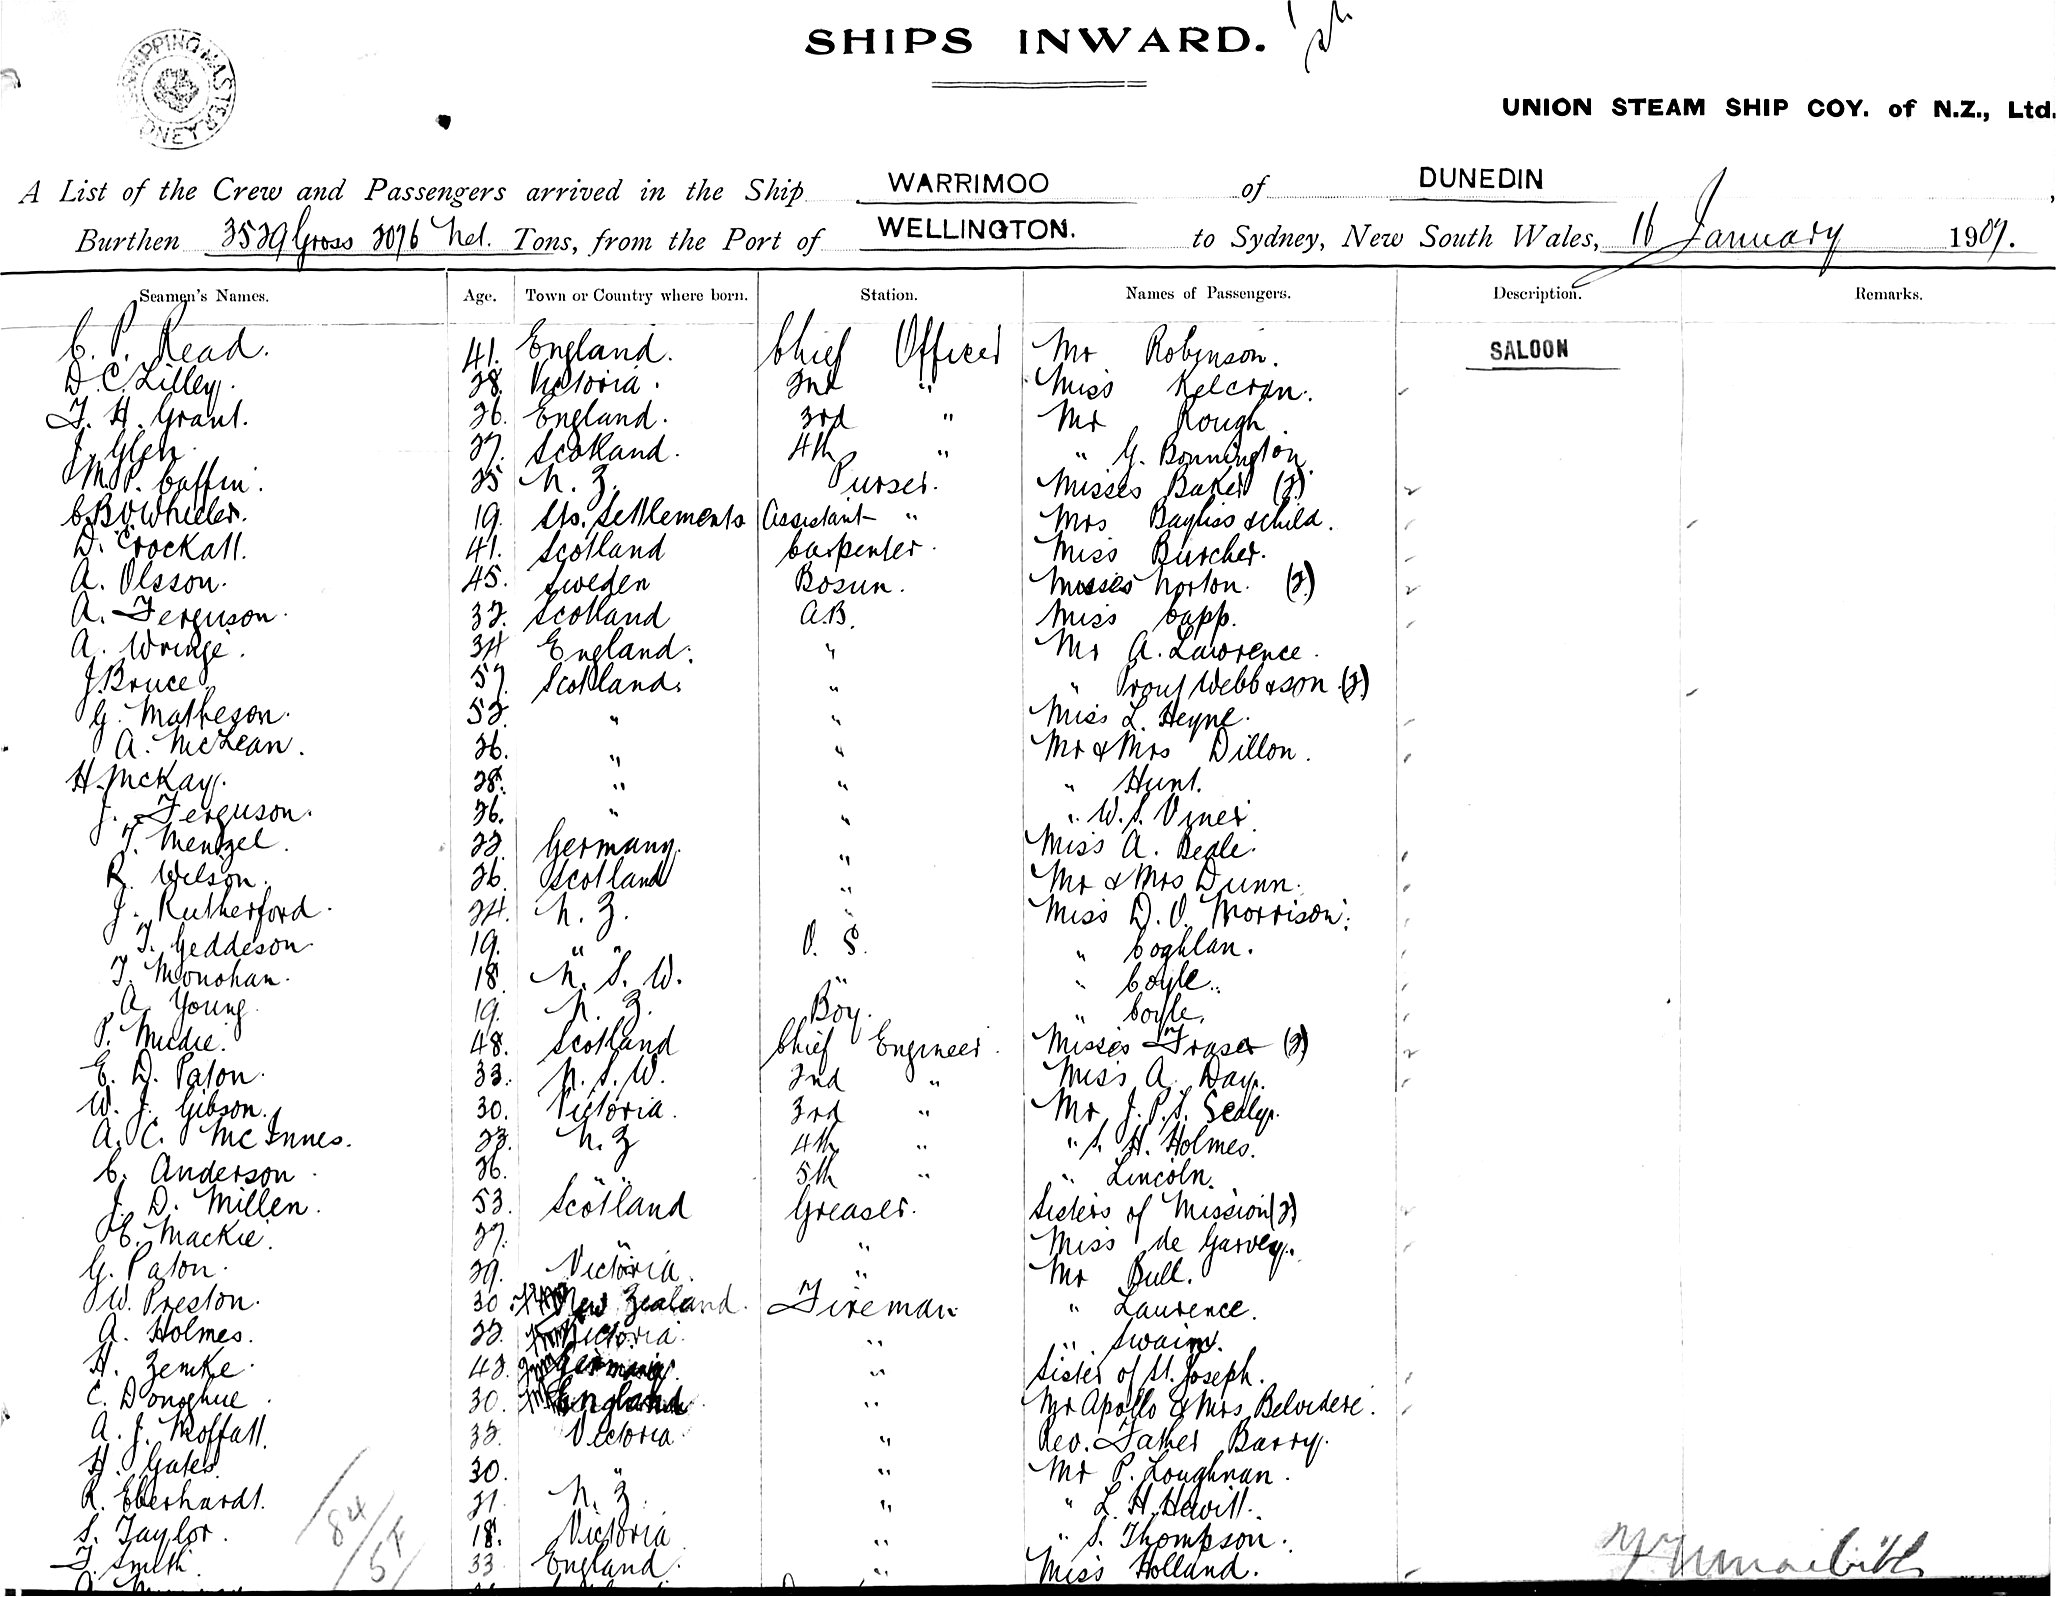 SHIPPING MASTER SYDNEY
SHIPS INWARD.
UNION STEAM SHIP COY. of N.Z., Ltd.
A List of the Crew and Passengers arrived in the Ship WARRIMOO of DUNEDIN,
Burthen 3529 Gross 2076 Net. Tons, from the Port of WELLINGTON. to Sydney, New South Wales, 16 January 1907.
Seamen's Names. Age. Town or Country where born. Station. Names of Passengers. Description. Remarks.
C. P. Read. 41. England. Chief Officer Mr Robinson. SALOON
D. C. Lilley. 28. Victoria. 2nd " Miss Kelcran.
F. H. Grant. 26. England. 3rd " Mr Rough.
J. Glen. 27. Scotland. 4th " " G. Bonnington.
M. P. Caffin. 25 N. Z. Purser. Misses Baker (2)
C.B.V. Wheeler. 19. Sts. Settlements Assistant " Mrs Bayliss & child.
D. Crockatt. 41. Scotland Carpenter. Miss Burcher.
A. Olsson. 45. Sweden Bosun. Misses Norton. (2)
A. Ferguson. 32. Scotland A.B. Miss Capp.
A. Wringe. 34 England. " Mr A. Lawrence.
J. Bruce 57. Scotland. " " Prout Webb & son (2)
G. Matheson. 52. " " Miss L. Heyne.
A. McLean. 26. " " Mr & Mrs Dillon.
H. McKay. 28. " " " Hunt.
J. Ferguson. 26. " " " W. S. Viner
T. Mentzel. 22. Germany. " Miss A. Beale.
R. Wilson. 26. Scotland " Mr & Mrs Dunn.
J. Rutherford. 24. N. Z. " Miss D. O. Morrison.
T. Geddeson. 19. " " O. S. " Coghlan.
T. Monohan. 18. N. S. W. " " Coyle.
A. Young. 19. N. Z. Boy. " Coyle.
P. Mudie. 48. Scotland Chief Engineer. Misses Fraser (2)
E. D. Paton. 33. N. S. W. 2nd " Miss A. Day.
W. J. Gibson. 30. Victoria. 3rd " Mr J. P. S. Sealy.
A. C. McInnes. 22. N. Z 4th " " S. H. Holmes.
C. Anderson. 26. " " 5th " " Lincoln.
J. D. Millen. 53. Scotland Greaser. Sisters of Mission (2)
E. Mackie. 27. " " Miss de Garvey.
G. Paton. 29. Victoria. " Mr Bull.
W. Preston. 30 New Zealand. Fireman " Laurence.
A. Holmes. 22. Victoria. " " Swain.
H. Zemke. 42. Germany. " Sister of St. Joseph.
C. Donoghue 30. England " Mr Apollo & Mrs Belvidere.
A. J. Moffatt. 32. Victoria " Rev. Father Barry.
H. Gates. 30. " " Mr P. Loughnan.
R. Eberhardt. 21. N. Z. " " L. H. Hewitt.
S. Taylor. 18. Victoria " " S. Thompson.
F. Smith. 33 England. " Miss Holland.
84
5F